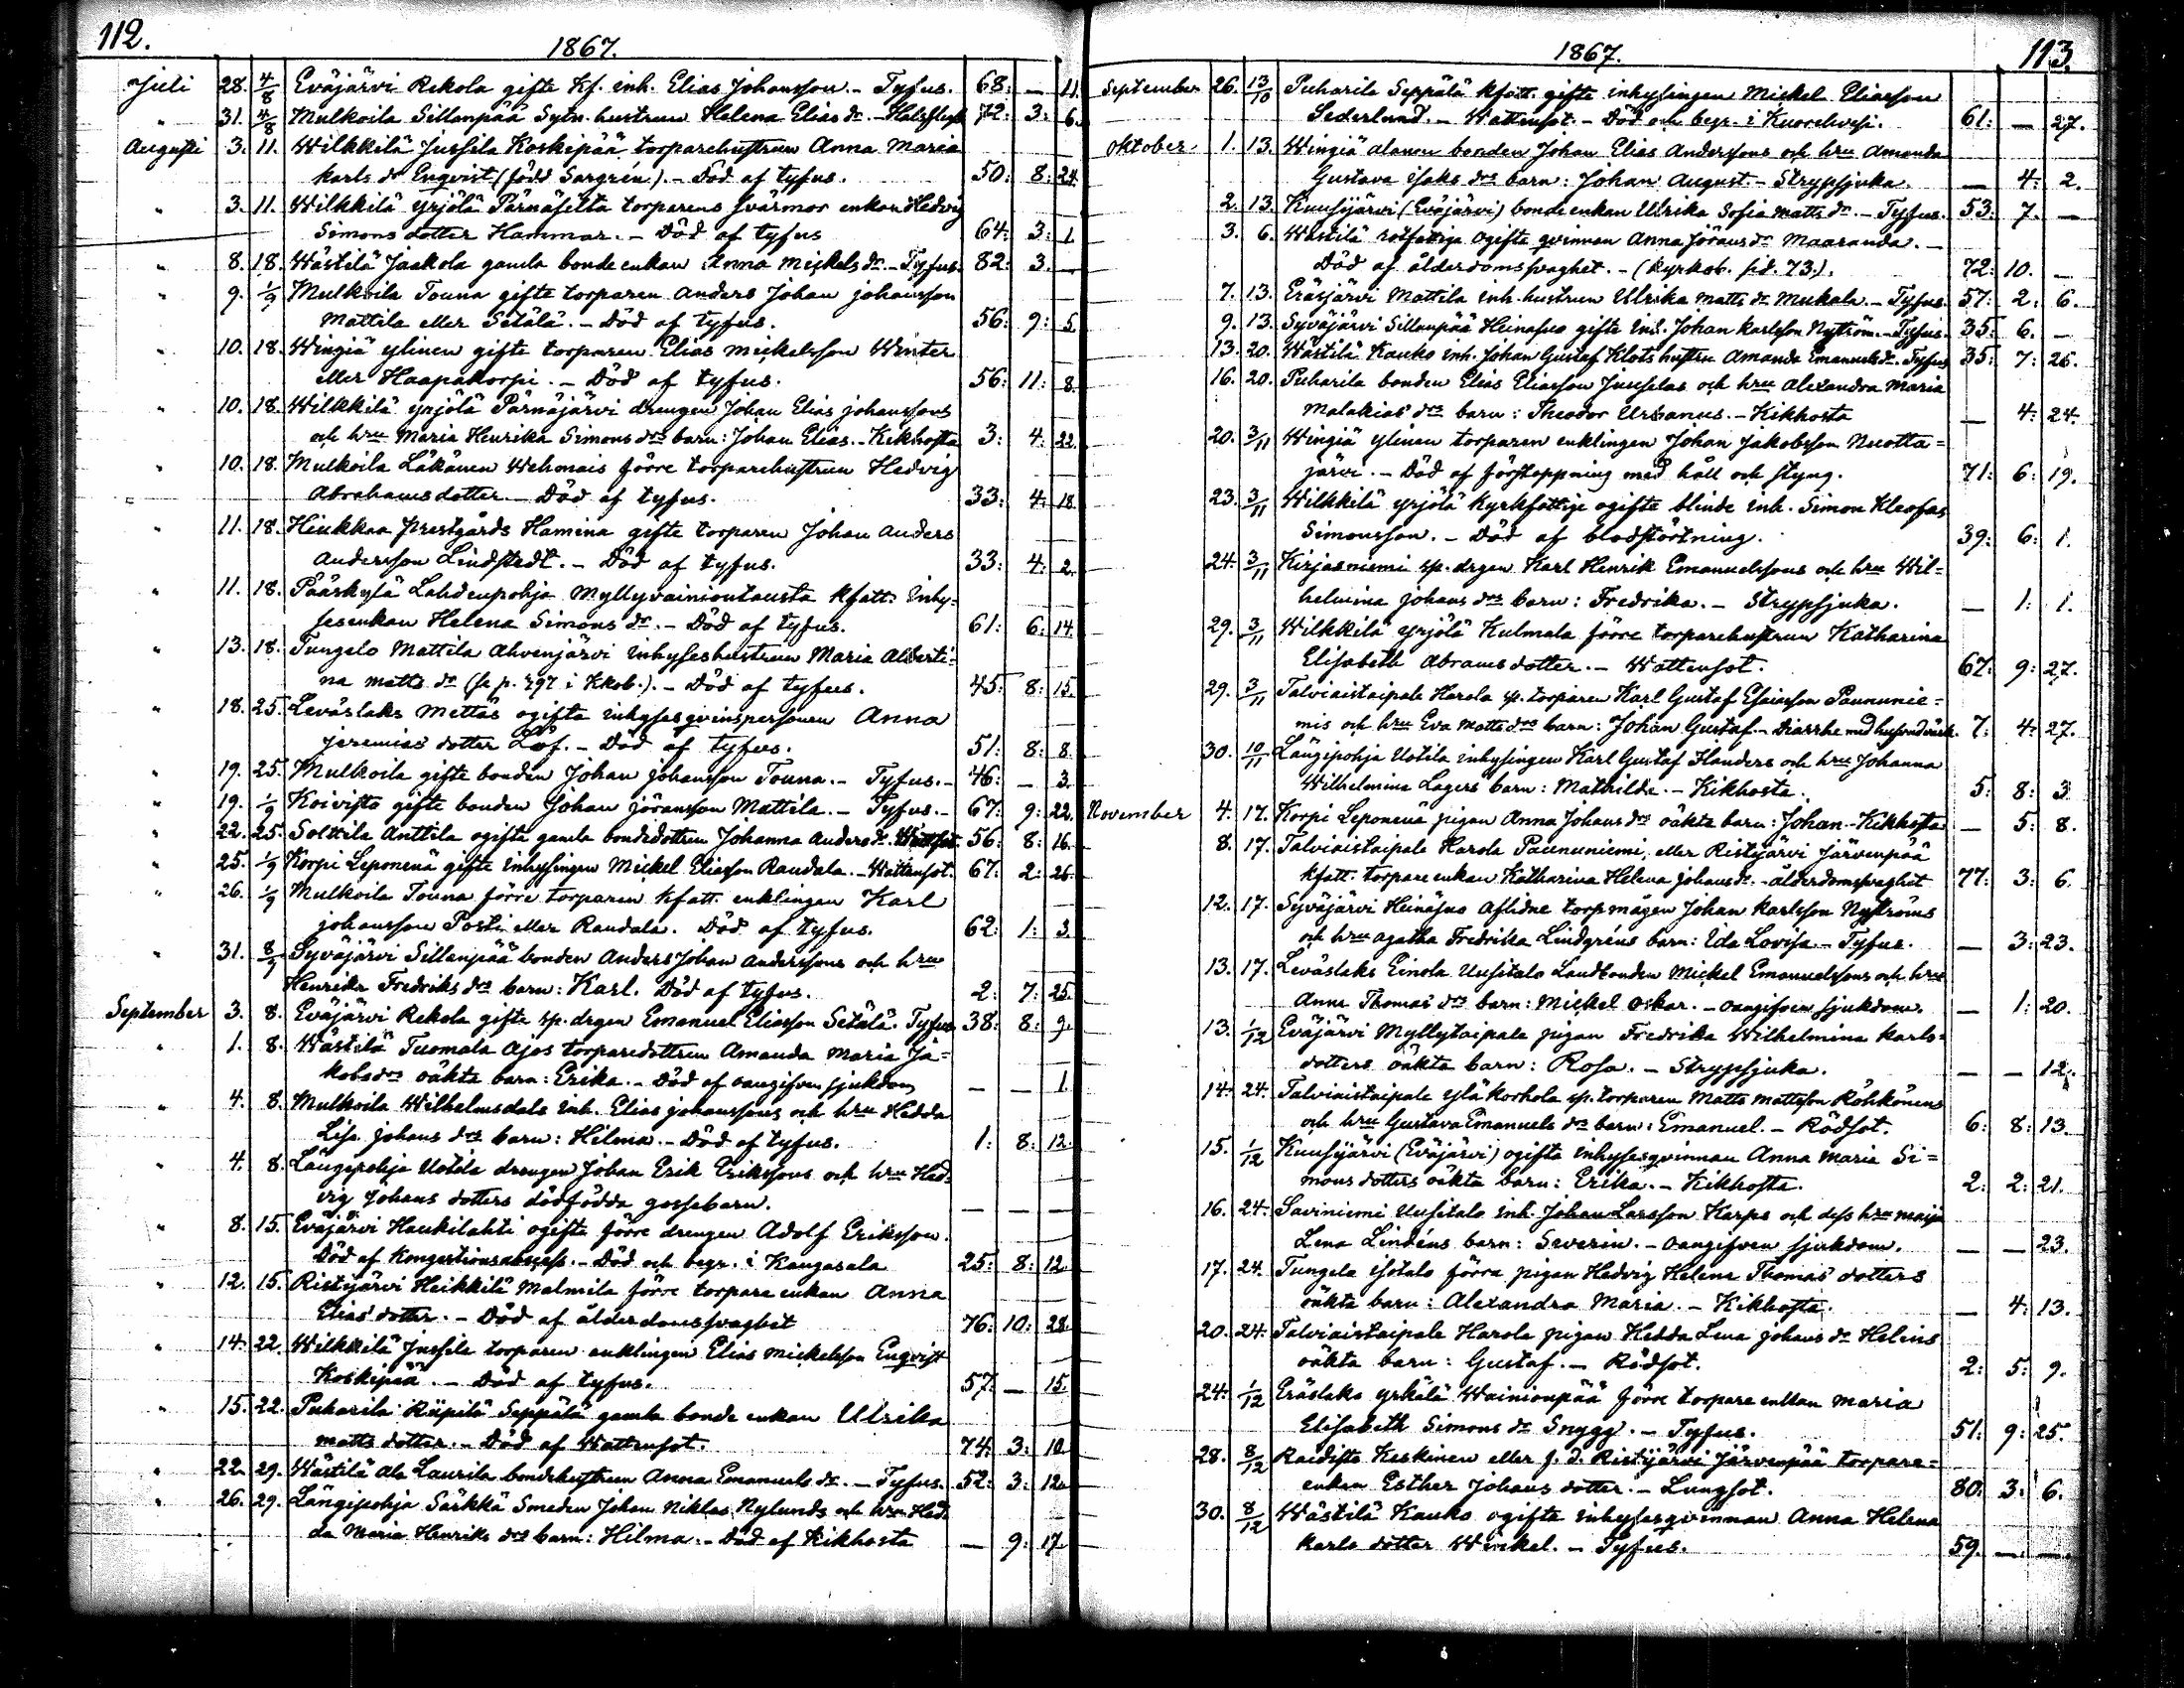 112.
1867.
Juli 28. 4/8 Eväjärvi Rekola gifte Kf. inh. Elias Johansson. - Tyfus. 68: — 11.
" 31. 4/8 Mulkoila Sillanpää Sytn. hustrun Helena Elias dr. - Halsflyß 72: 3: 6.
Augusti 3. 11. Wilkkilä Jussila Koskipää torparehustrun Anna Maria
Karls dr Enqvist (född Sargrén). - Död af tyfus. 50: 8: 24.
" 3. 11. Wilkkilä Yrjölä Pärnäsilta torparens svärmor enkan Hedvig
Simons dotter Hammar. - Död af tyfus 64: 3: 1.
" 8. 18. Wästilä Jaakola gamla bondeenkan Anna Mickels dr. - Tyfus. 82: 3. —
" 9. 1/9 Mulkoila Touna gifte torparen Anders Johan Johansson
Mattila eller Setälä. - Död af tyfus. 56: 9: 5.
" 10. 18. Wingiä Ylinen gifte torparen Elias Mickelsson Winter
eller Haapakorpi. - Död af tyfus. 56: 11: 8.
" 10. 18. Wilkkilä Yrjölä Pärnäjärvi drengen Johan Elias Johanssons
och hru Maria Henrika Simons drs barn: Johan Elias. - Kikhosta 3: 4: 22.
" 10. 18. Mulkoila Läkänen Wehmais förre torparehustrun Hedvig
Abrahams dotter. - Död af tyfus. 33: 4: 18.
" 11. 18. Hiukkaa prestgårds Hamina gifte torparen Johan Anders
Andersson Lindstedt. - Död af tyfus. 33: 4: 2.
" 11. 18. Pääskylä Lahdenpohja Myllyvainiontausta kfatt. Inhy-
sesenkan Helena Simons dr. - Död af tyfus. 61: 6: 14.
" 13. 18. Tungelo Mattila Ahvenjärvi Inhyseshustrun Maria Alberti-
na Matts dr (se p. 797 i Kkob.). - Död af tyfus. 45: 8: 15.
" 18. 25. Leväslaks Mettäs ogifta inhyses qvinspersonen Anna
Jeremias dotter Löf. - Död af tyfus. 51: 8: 8.
" 19. 25. Mulkoila gifte bonden Johan Johansson Touna. - Tyfus. - 46: — 3.
" 19. 1/9 Koivisto gifte bonden Johan Jöransson Mattila. - Tyfus. - 67: 9: 22.
" 22. 25. Solttila Anttila ogifta gamla bondedottren Johanna Anders dr. Wattsot. 56: 8: 16.
" 25. 1/9 Korpi Leponenä gifte Inhysingen Mickel Eliasson Randala. - Wattensot. 67: 2: 26.
" 26. 1/9 Mulkoila Touna förre torparen kfatt. enklingen Karl
Johansson Posti eller Randala. Död af tyfus. 62: 1: 3.
" 31. 8/9 Syväjärvi Sillanpää bonden Anders Johan Anderssons och hru
Henrika Fredriks drs barn: Karl. Död af tyfus. 2: 7: 25.
September 3. 8. Eväjärvi Rekola gifte sp. drgen Emanuel Eliasson Setälä. Tyfus 38: 8: 9.
" 1. 8. Wästilä Tuomala Ajos torparedottren Amanda Maria Ja-
kobs drs oäkta barn: Erika. - Död af oangifven sjukdom — — 1.
" 4. 8. Mulkoila Wilhelmsdals inh. Elias Johanssons och hru Hedda
Lisa Johans drs barn: Hilma. - Död af tyfus. 1: 8: 12.
" 4. 8. Längipohja Uotila drengen Johan Erik Erikssons och hru Hed-
vig Johans dotters dödfödda gossebarn. — — —
" 8. 15. Eväjärvi Haukilahti ogifte förre drengen Adolf Eriksson.
Död af Kongestionsabscess. - Död och begr. i Kangasala 25: 8: 12.
" 12. 15. Ristijärvi Heikkilä Malmila förre torpare enkan Anna
Elias dotter. - Död af ålderdomssvaghet 76: 10: 28.
" 14. 22. Wilkkilä Jussila torparen enklingen Elias Mickelsson Enqvist
Koskipää. - Död af tyfus. 57: — 15.
" 15. 22. Puharila Riipilä Seppälä gamla bonde enkan Ulrika
Matts dotter. - Död af Wattensot. 74: 3: 10.
" 22. 29. Wästilä Ala Laurila bondehustrun Anna Emanuels dr. - Tyfus. 52: 3: 12.
" 26. 29. Längipohja Särkkä Smeden Johan Niklas Nylunds och hru Hed-
da Maria Henriks drs barn: Hilma. - Död af Kikhosta — 9: 17.
1867.
113.
September 26. 13/10 Puharila Seppälä kfatt. gifte inhysingen Mickel Eliasson
Sederlund. - Wattensot. - Död och begr. i Kuorehvesi. 61: — 27.
Oktober 1. 13. Wingiä Alanen bonden Johan Elias Anderssons och hru Amanda
Gustava Isaks drs barn: Johan August. - Strypsjuka. — 4: 2.
2. 13. Kuusijärvi (Eväjärvi) bonde enkan Ulrika Sofia Matts dr. - Tyfus. 53: 7. —
3. 6. Wästilä rotfattiga Ogifta qvinnan Anna Jörans dr Maaranda. -
Död af ålderdomssvaghet. - (kyrkob. sid. 73.). 72: 10. —
7. 13. Eräsjärvi Mattila inh. hustrun Ulrika Matts dr Mukala. - Tyfus. 57: 2: 6.
9. 13. Syväjärvi Sillanpää Heinäsuo gifte Inh. Johan Karlsson Nyström. - Tyfus. 35: 6. —
13. 20. Wästilä Kauko inh. Johan Gustaf Klots hustru Amanda Emanuels dr. Tyfus 35: 7: 26.
16. 20. Puharila bonden Elias Eliasson Juuselas och hru Alexandra Maria
Malakias drs barn: Theodor Urbanus. - Kikhosta — 4: 24.
20. 3/11 Wingiä Ylinen torparen enklingen Johan Jakobsson Nuotta-
järvi. - Död af förstoppning med håll och styng. 71: 6: 19.
23. 3/11 Wilkkilä Yrjölä Kyrkfattige ogifte blinde inh. Simon Kleofas
Simonsson. - Död af blodstörtning. 39: 6: 1.
24. 3/11 Kirjasniemi sp. drgen Karl Henrik Emanuelssons och hru Wil-
helmina Johans drs barn: Fredrika. - Strypsjuka. — 1: 1.
29. 3/11 Wilkkilä Yrjölä Kulmala förre torparehustrun Katharina
Elisabeth Abrams dotter. - Wattensot. 67: 9: 27.
29. 3/11 Talviaistaipale Harola sp. torparen Karl Gustaf Esaiasson Paununie-
mis och hru Eva Matts drs barn: Johan Gustaf. - Diarrhe med hufvudvärk. 7: 4: 27.
30. 10/11 Längipohja Uotila inhysingen Karl Gustaf Flanders och hru Johanna
Wilhelmina Lagers barn: Mathilda. - Kikhosta. 5: 8: 3
November 4. 17. Korpi Leponenä pigan Anna Johans drs oäkta barn: Johan. - Kikhosta — 5: 8.
8. 17. Talviaistaipale Harola Paununiemi, eller Ristijärvi Järvenpää
kfatt. torpare enkan Katharina Helena Johans dr. - ålderdomssvaghet 77: 3: 6.
12. 17. Syväjärvi Heinäsuo Aflidne torp. mågen Johan Karlsson Nyströms
och hru Agatha Fredrika Lindgréns barn: Ida Lovisa. - Tyfus. — 3: 23.
13. 17. Leväslaks Einola Uusitalo Landbonden Mickel Emanuelssons och hru
Anna Thomas drs barn: Mickel Oskar. - oangifven sjukdom. — 1: 20.
13. 1/12 Eväjärvi Myllytaipale pigan Fredrika Wilhelmina Karls-
dotters oäkta barn: Rosa. - Strypsjuka. — — 12.
14. 24. Talviaistaipale Ylä Korhola sp. torparen Matts Mattsson Röhkönens
och hru Gustava Emanuels drs barn: Emanuel. - Rödsot. 6: 8: 13.
15. 1/12 Kuusijärvi (Eväjärvi) ogifta inhysesqvinnan Anna Maria Si-
mons dotters oäkta barn: Erika. - Kikhosta. 2: 2: 21.
16. 24. Saviniemi Uusitalo inh. Johan Larsson Karps och dess hru Maija
Lena Lindéns barn: Severin. - oangifven sjukdom. — — 23.
17. 24. Tungelo Isotalo förra pigan Hedvig Helena Thomas dotters
oäkta barn: Alexandra Maria. - Kikhosta. — 4: 13.
20. 24. Talviaistaipale Harola pigan Hedda Lena Johans dr Helins
oäkta barn: Gustaf. - Rödsot. 2: 5: 9.
24. 1/12 Eräslaks Yrkälä Wainionpää förre torpare enkan Maria
Elisabeth Simons dr Snygg. - Tyfus. 51: 9: 25.
28. 8/12 Raidisto Keskinen eller f. d. Ristijärvi Järvenpää torpare-
enkan Esther Johans dotter. - Lungsot. 80: 3: 6.
30. 8/12 Wästilä Kauko ogifta inhysesqvinnan Anna Helena
Karls dotter Winkel. - Tyfus. 59. — —